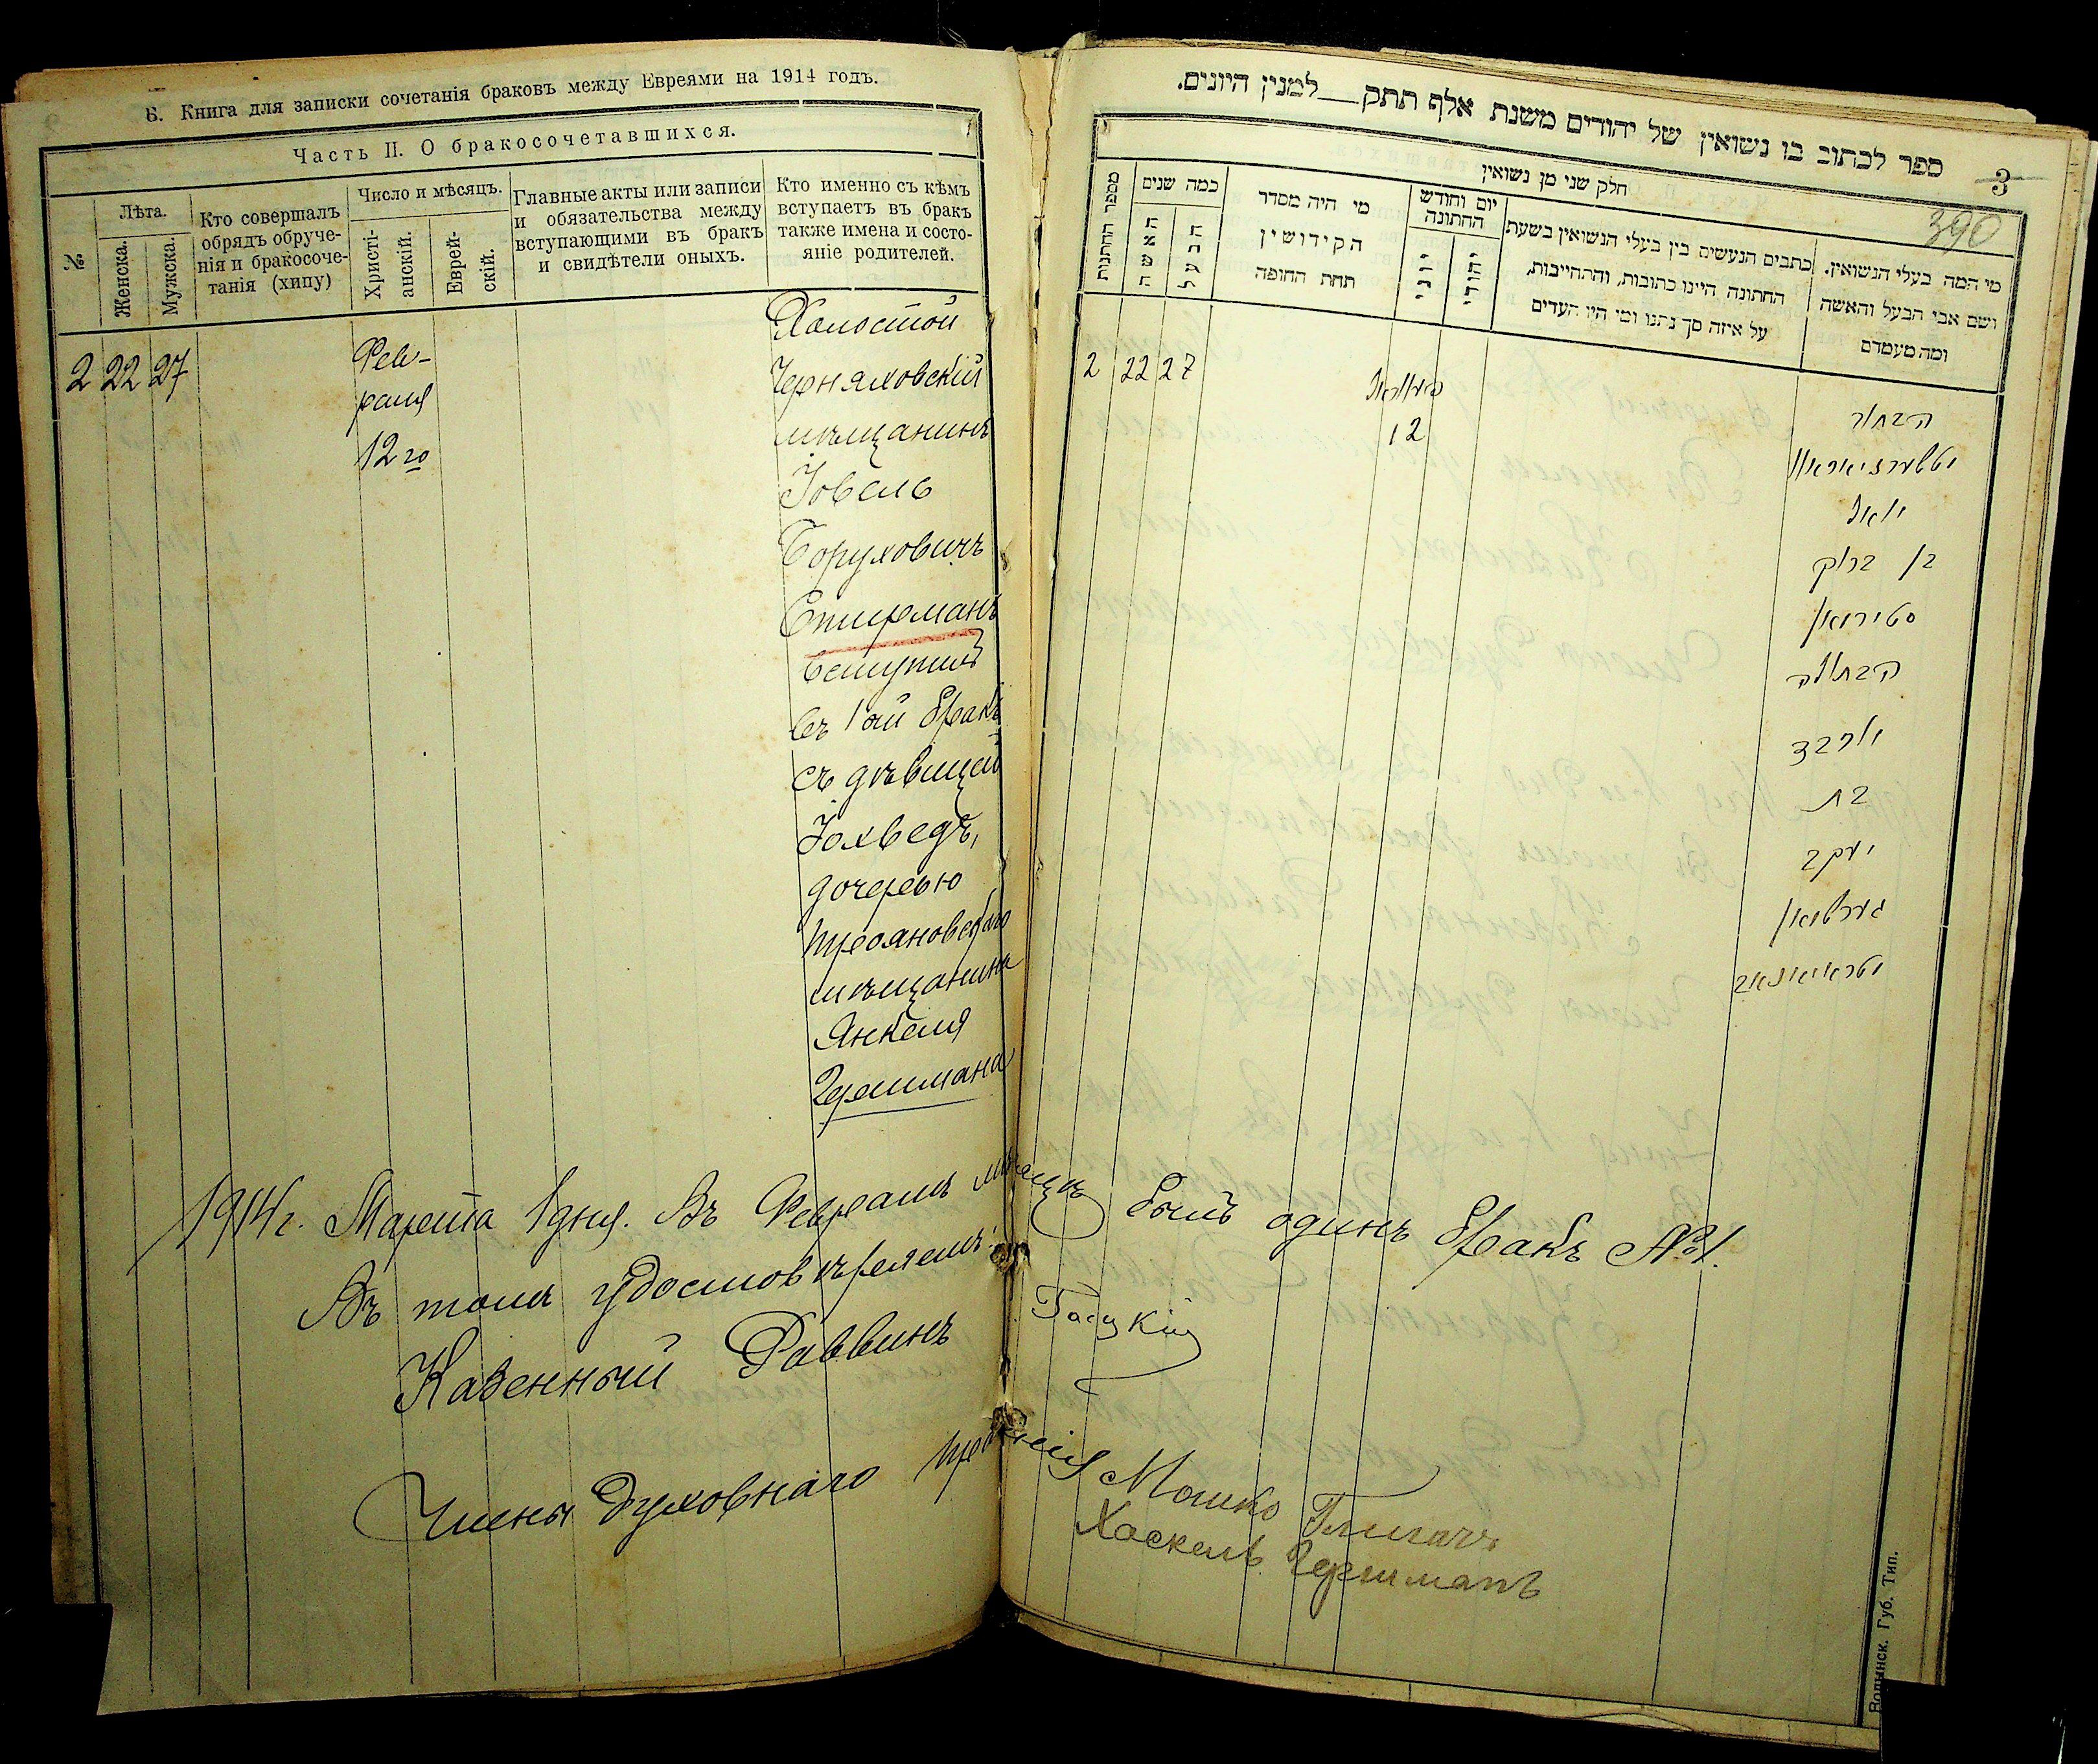 Б. Книга для записки сочетанія браковъ между Евреями на 1914 годъ.
Часть II. О бракосочетавшихся.
№
Лѣта.
Женска.
Мужска.
Кто совершалъ
обрядъ обруче-
нія и бракосоче-
танія (хипу)
Число и мѣсяцъ.
Христі-
анскій.
Еврей-
скій.
Главные акты или записи
и обязательства между
вступающими въ бракъ
и свидѣтели оныхъ.
Кто именно съ кѣмъ
вступаетъ въ бракъ
также имена и состо-
яніе родителей.
2 22 27
Фев-
раля
12го
Холостой
Черняховскій
мѣщанинъ
Іовель
Боруховичъ
Стирманъ
вступилъ
въ 1ый бракъ
съ дѣвицей
Іохведъ,
дочерью
Трояновскаго
мѣщанина
Янкеля
Гершмана
1914 г. Марта 1 дня. Въ Февралѣ мѣсяцѣ былъ одинъ бракъ №1.
Въ томъ удостовѣряемъ:
Казенный Раввинъ
Члены Духовнаго правленія Мошко
Хаскель Гершманъ
ספר לכתוב בו נשואין של יהודים משנת אלף תתק__למנין היונים.
3
390
חלק שני מן נשואין
מספר החתנות
כמה שנים
האשה
הבעל
מי היה מסדר
הקידושין
תחת החופה
יום וחודש
החתונה
יוני
יהודי
כתבים הנעשים בין בעלי הנשואין בשעת
החתונה היינו כתובות, והתחייבות,
על איזה סך נתנו ומי היו העדים
מי המה בעלי הנשואין.
ושם אבי הבעל והאשה
ומה מעמדם
2 22 27
12
הבחור
יואל
בן ברוך
סטירמאן
הבתולה
יוכבד
בת
יעקב
גערשמאן
Волынск. Губ. Тип.